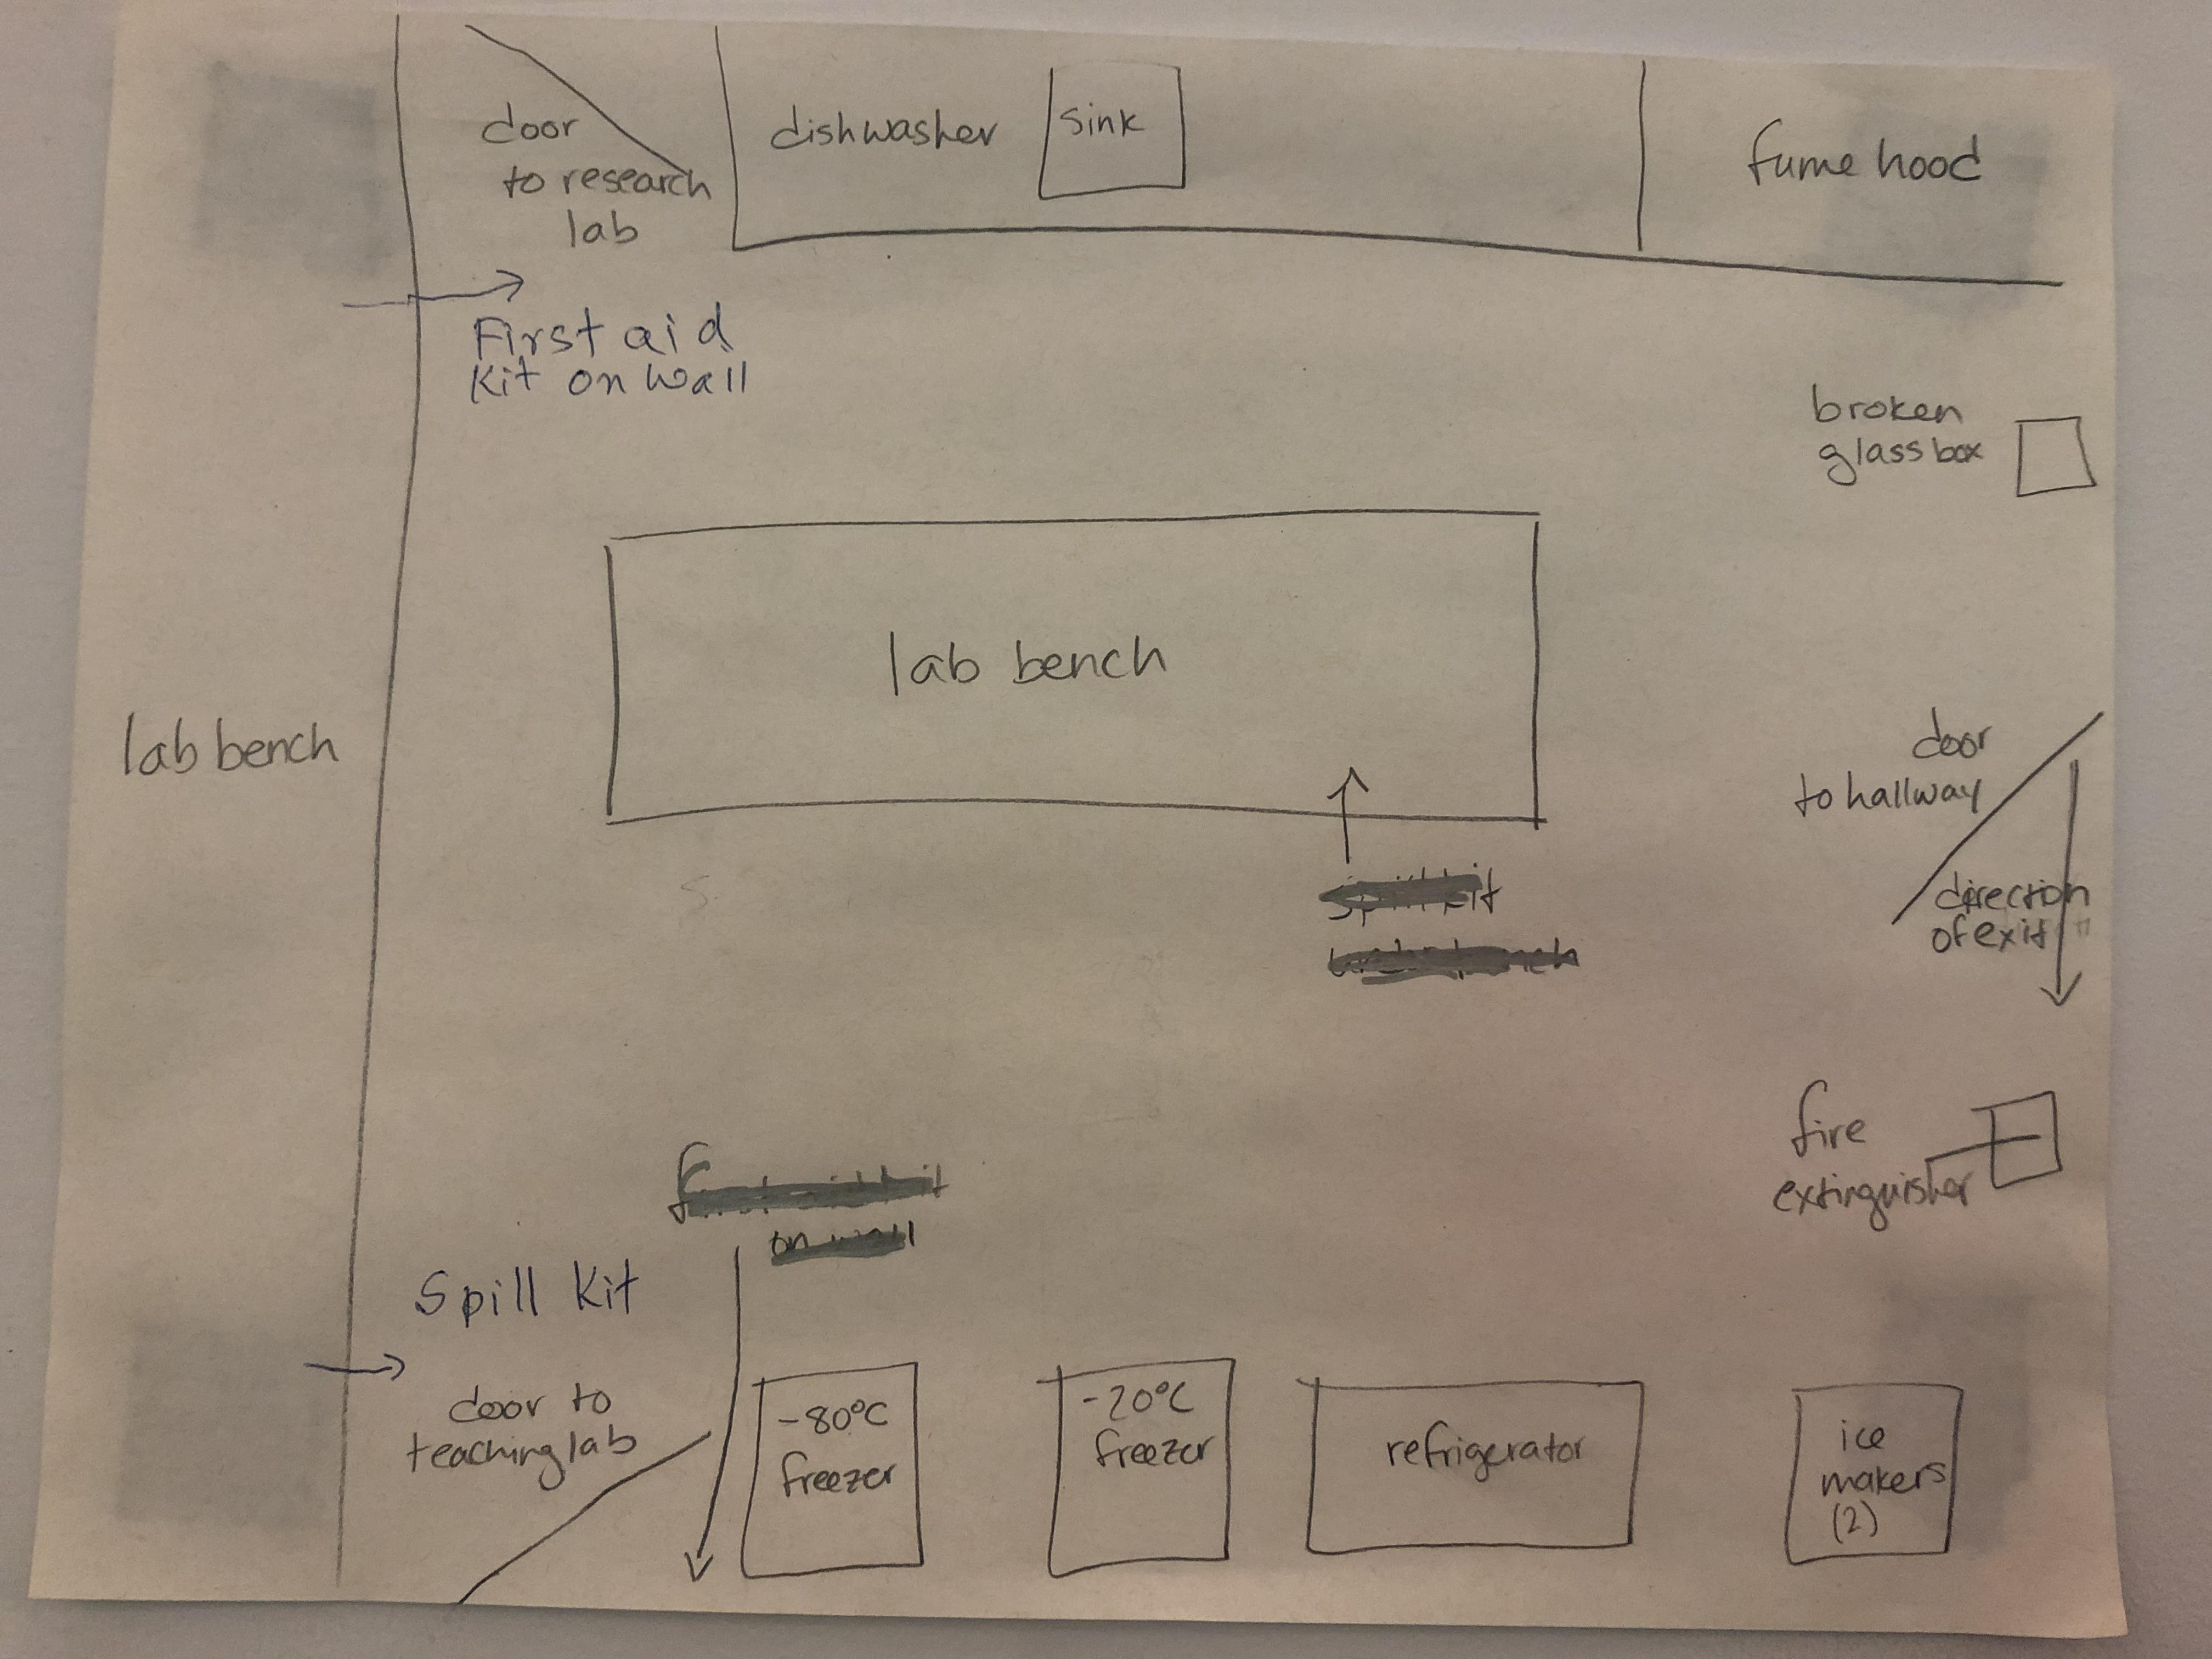 door
to research
lab
dishwasher
sink
fume hood
First aid
Kit on wall
broken
glass box
lab bench
lab bench
door
to hallway
direction
of exit
fire
extinguisher
Spill Kit
door to
teaching lab
-80°C
freezer
-20°C
freezer
refrigerator
ice
makers
(2)